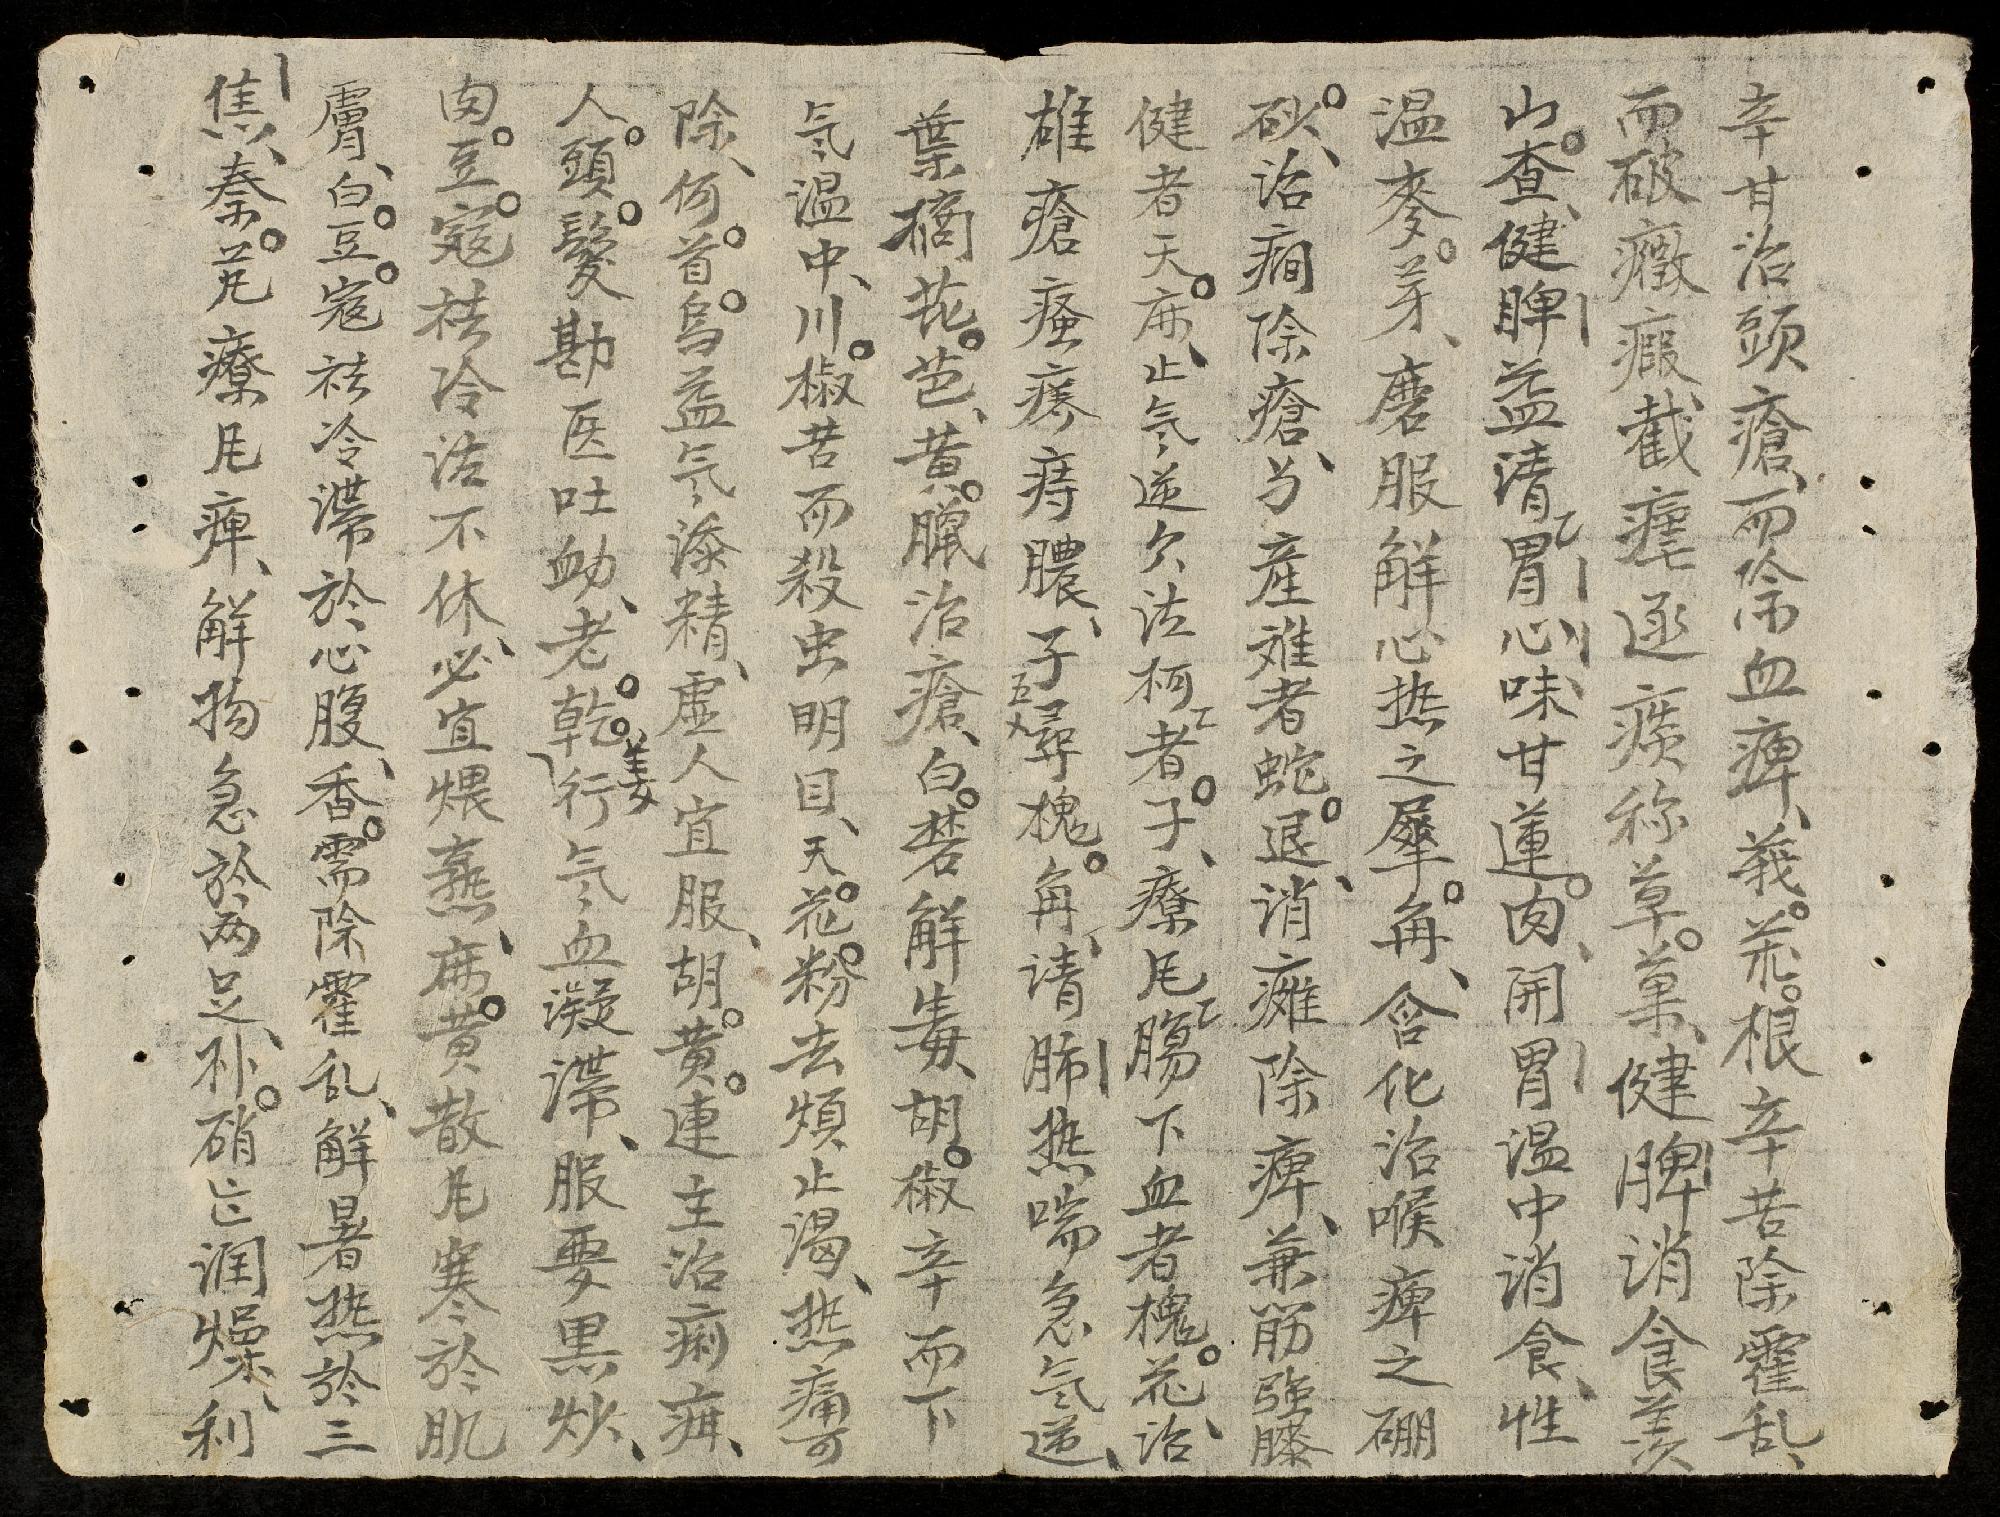 辛甘治頭瘡、而除血痺、莪茶根辛苦除霍乱、
而破癥瘕、截瘧逐痰称草菓、健脾消食羡
山查、健脾益清胃心味甘蓮肉、開胃温中消食、性
温麥芽、磨服解心热之犀角、含化治喉痺之硼
砂、治癇除瘡、为産难者蛇退、消癰除痺、兼筋強膝
健者天麻、止气逆欠法柯者子、療凡腸下血者槐花、治
雄瘡瘙瘆痔膿、子尋槐角、请肺热喘急气逆、
葉摘苝芭、黄臘治瘡、白礬解毒、胡椒辛而下
气温中、川椒苦而殺虫明目、天花粉去煩止渴、热痛可
除、何首烏益气添精、虚人宜服、胡黄連主治痢疳、
人頭髮勘医吐衄、老乾姜行气血凝滯、服要黒炒、
肉豆寇祛冷法不休、必宜煨熹、麻黄散凡寒於肌
膚、白豆寇祛冷滯於心腹、香需除霍乱、解暑热於三
焦、秦芃療凡痺、解物急於两足、朴硝亡润燥、利